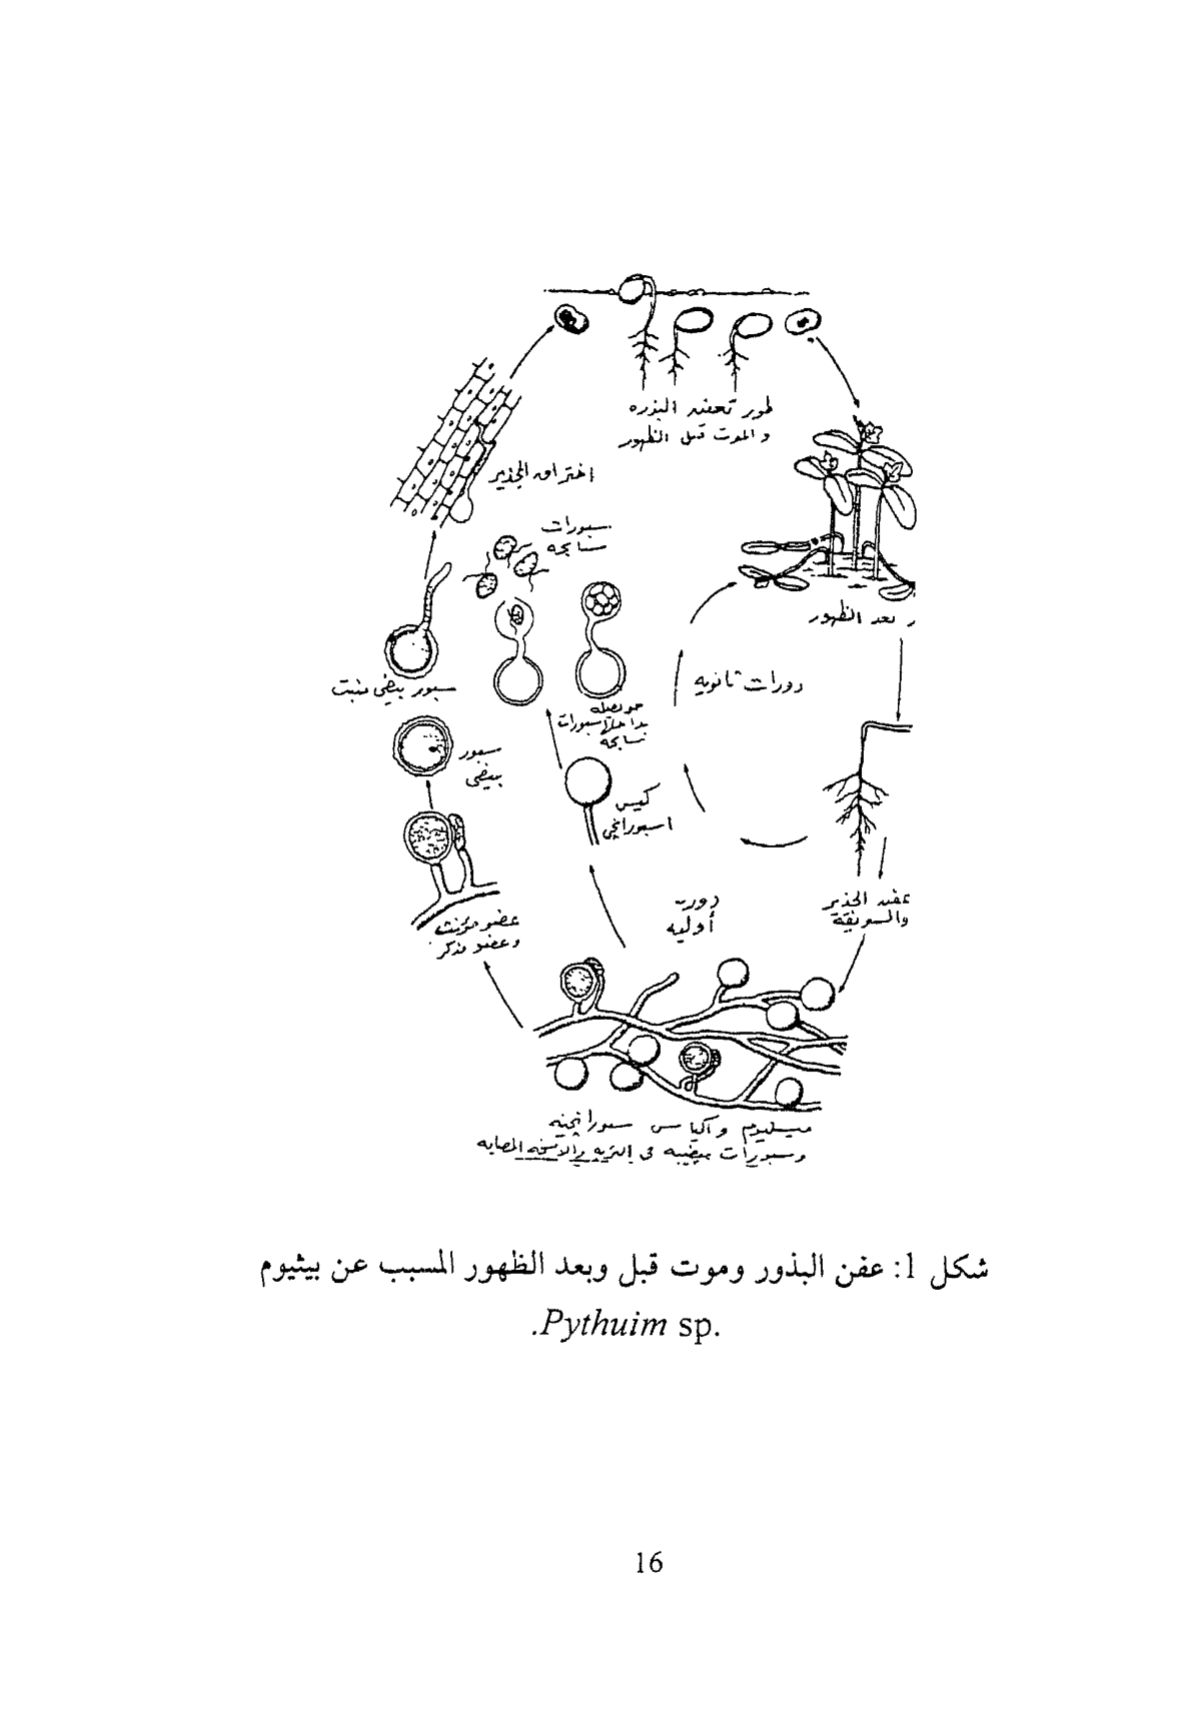 طور تعفن البذره
و الموت قبل الظهور
اختراق الجذير
سبورات
سابحه
ر بعد الظهور
سبور بيضي منبت
حويصله
بداخلها سبورات
سابحه
دورات ثانويه
سبور
بيضي
كيس
اسبورانجي
عضو مؤنث
وعضو مذكر
دورت
أوليه
عفن الجذير
والسويقة
ميسليوم و اكياس سبورانجيه
وسبورات بيضيه فى التربه والانسجه المصابه
شكل 1: عفن البذور وموت قبل وبعد الظهور المسبب عن بيثيوم
.Pythuim sp.
16